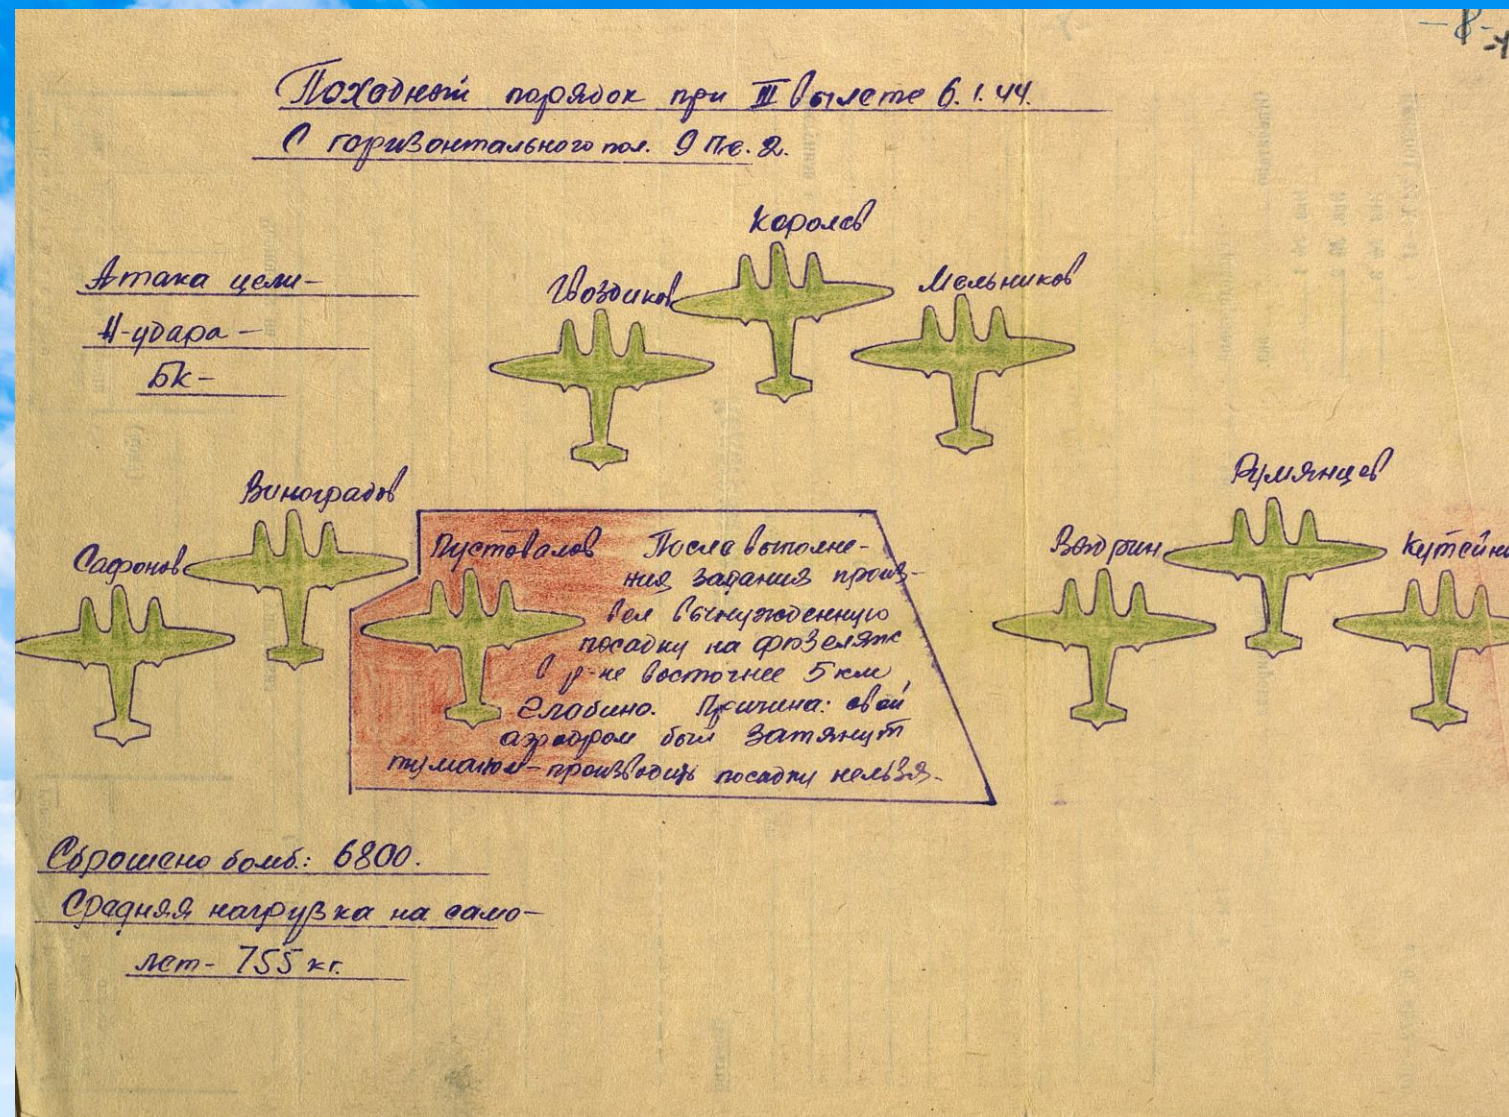 Походный порядок при III вылете 6.1.44.
С горизонтального пол. 9 Пе.2.
Атака цели-
Н-удара-
Бк-
Королев
Гвоздиков
Мельников
Виноградов
Сафонов
Румянцев
Вахрин
Кутейни
Пустовалов После выполне-
ния задания произ-
вел вынужденную
посадку на фюзеляж
в р-не восточнее 5 км
Глобино. Причина: свой
аэродром был затянут
туманом-производить посадку нельзя.
Сброшено бомб.: 6800.
Средняя нагрузка на само-
лет- 755 кг.
-8-